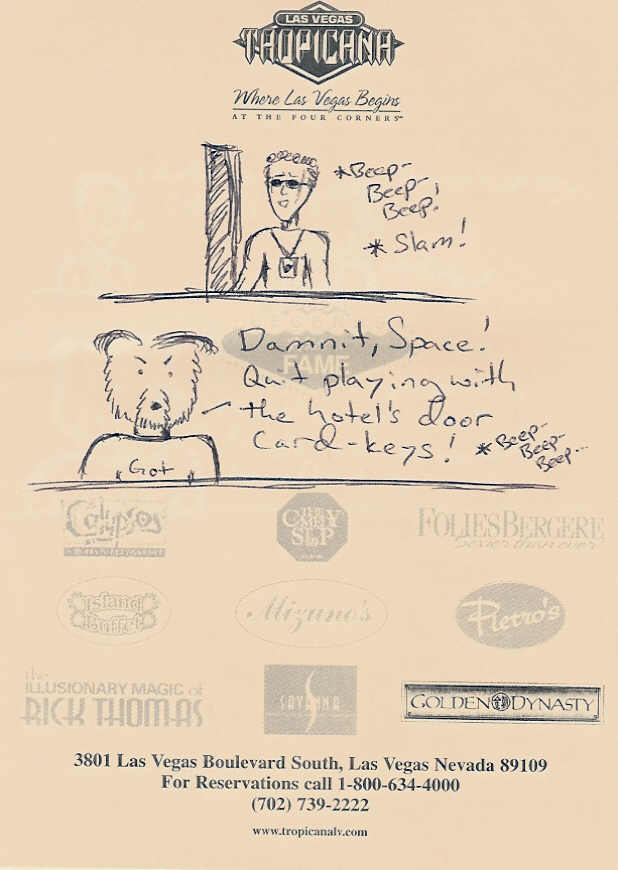 LAS VEGAS
TROPICANA
Where Las Vegas Begins
AT THE FOUR CORNERS℠
*Beep-
Beep-
Beep!
* Slam!
Damnit, Space!
Quit playing with
the hotel's door
Card-keys! *Beep-
Beep-
Beep-
Got
FAME
Calypsos
THE
COMEDY
STOP
FOLIES BERGERE
sexier than ever
Island
Buffet
Mizuno's
Pietro's
the
ILLUSIONARY MAGIC of
RICK THOMAS
SAVANNA
GOLDEN DYNASTY
3801 Las Vegas Boulevard South, Las Vegas Nevada 89109
For Reservations call 1-800-634-4000
(702) 739-2222
www.tropicanalv.com